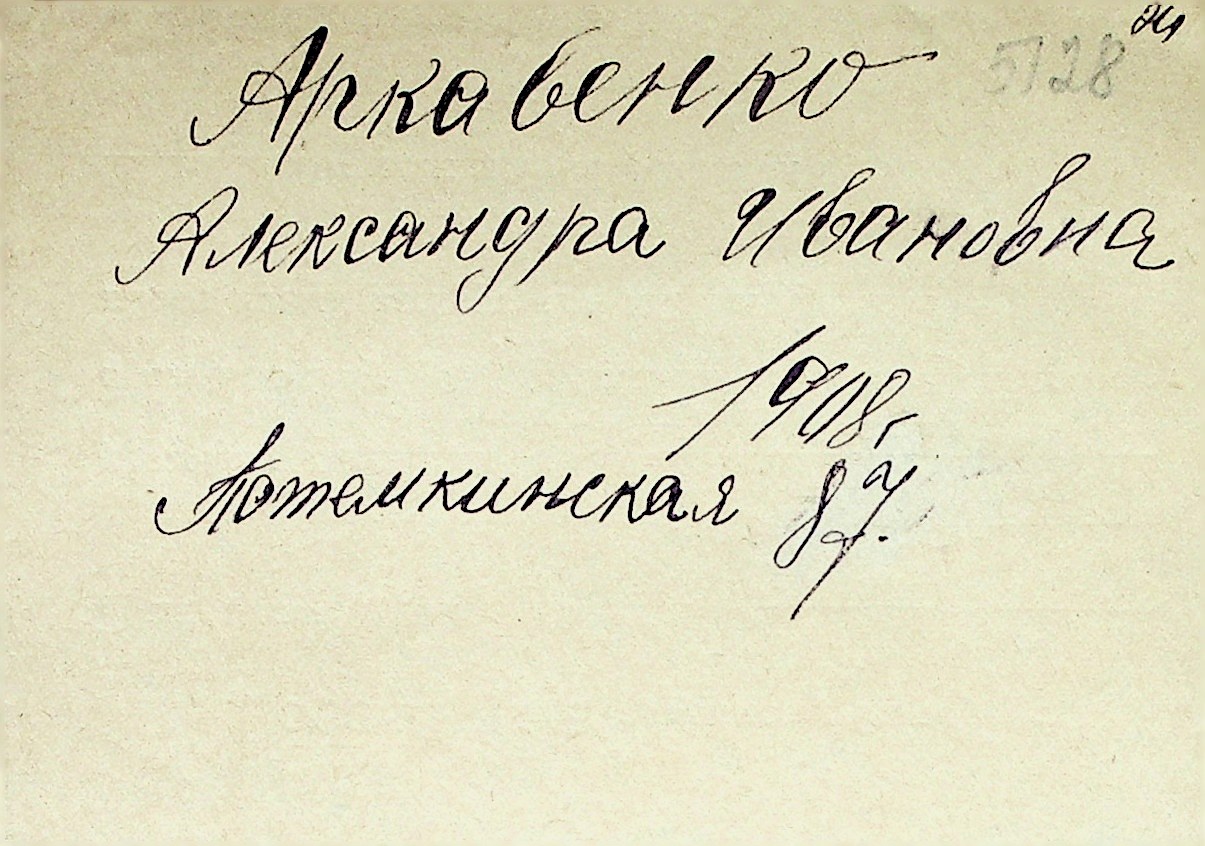 Аркавенко 5128
Александра Ивановна
1908г
Потемкинская 87.